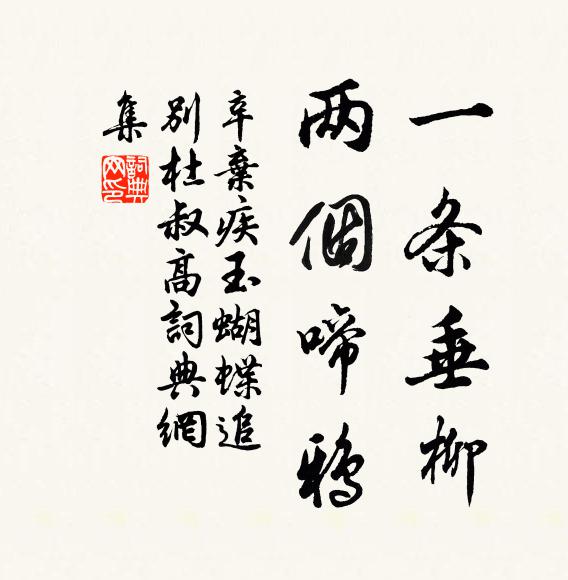 一条垂柳
两個啼鴉
辛棄疾玉蝴蝶追
别杜叔高詞典網
集
詞典网印